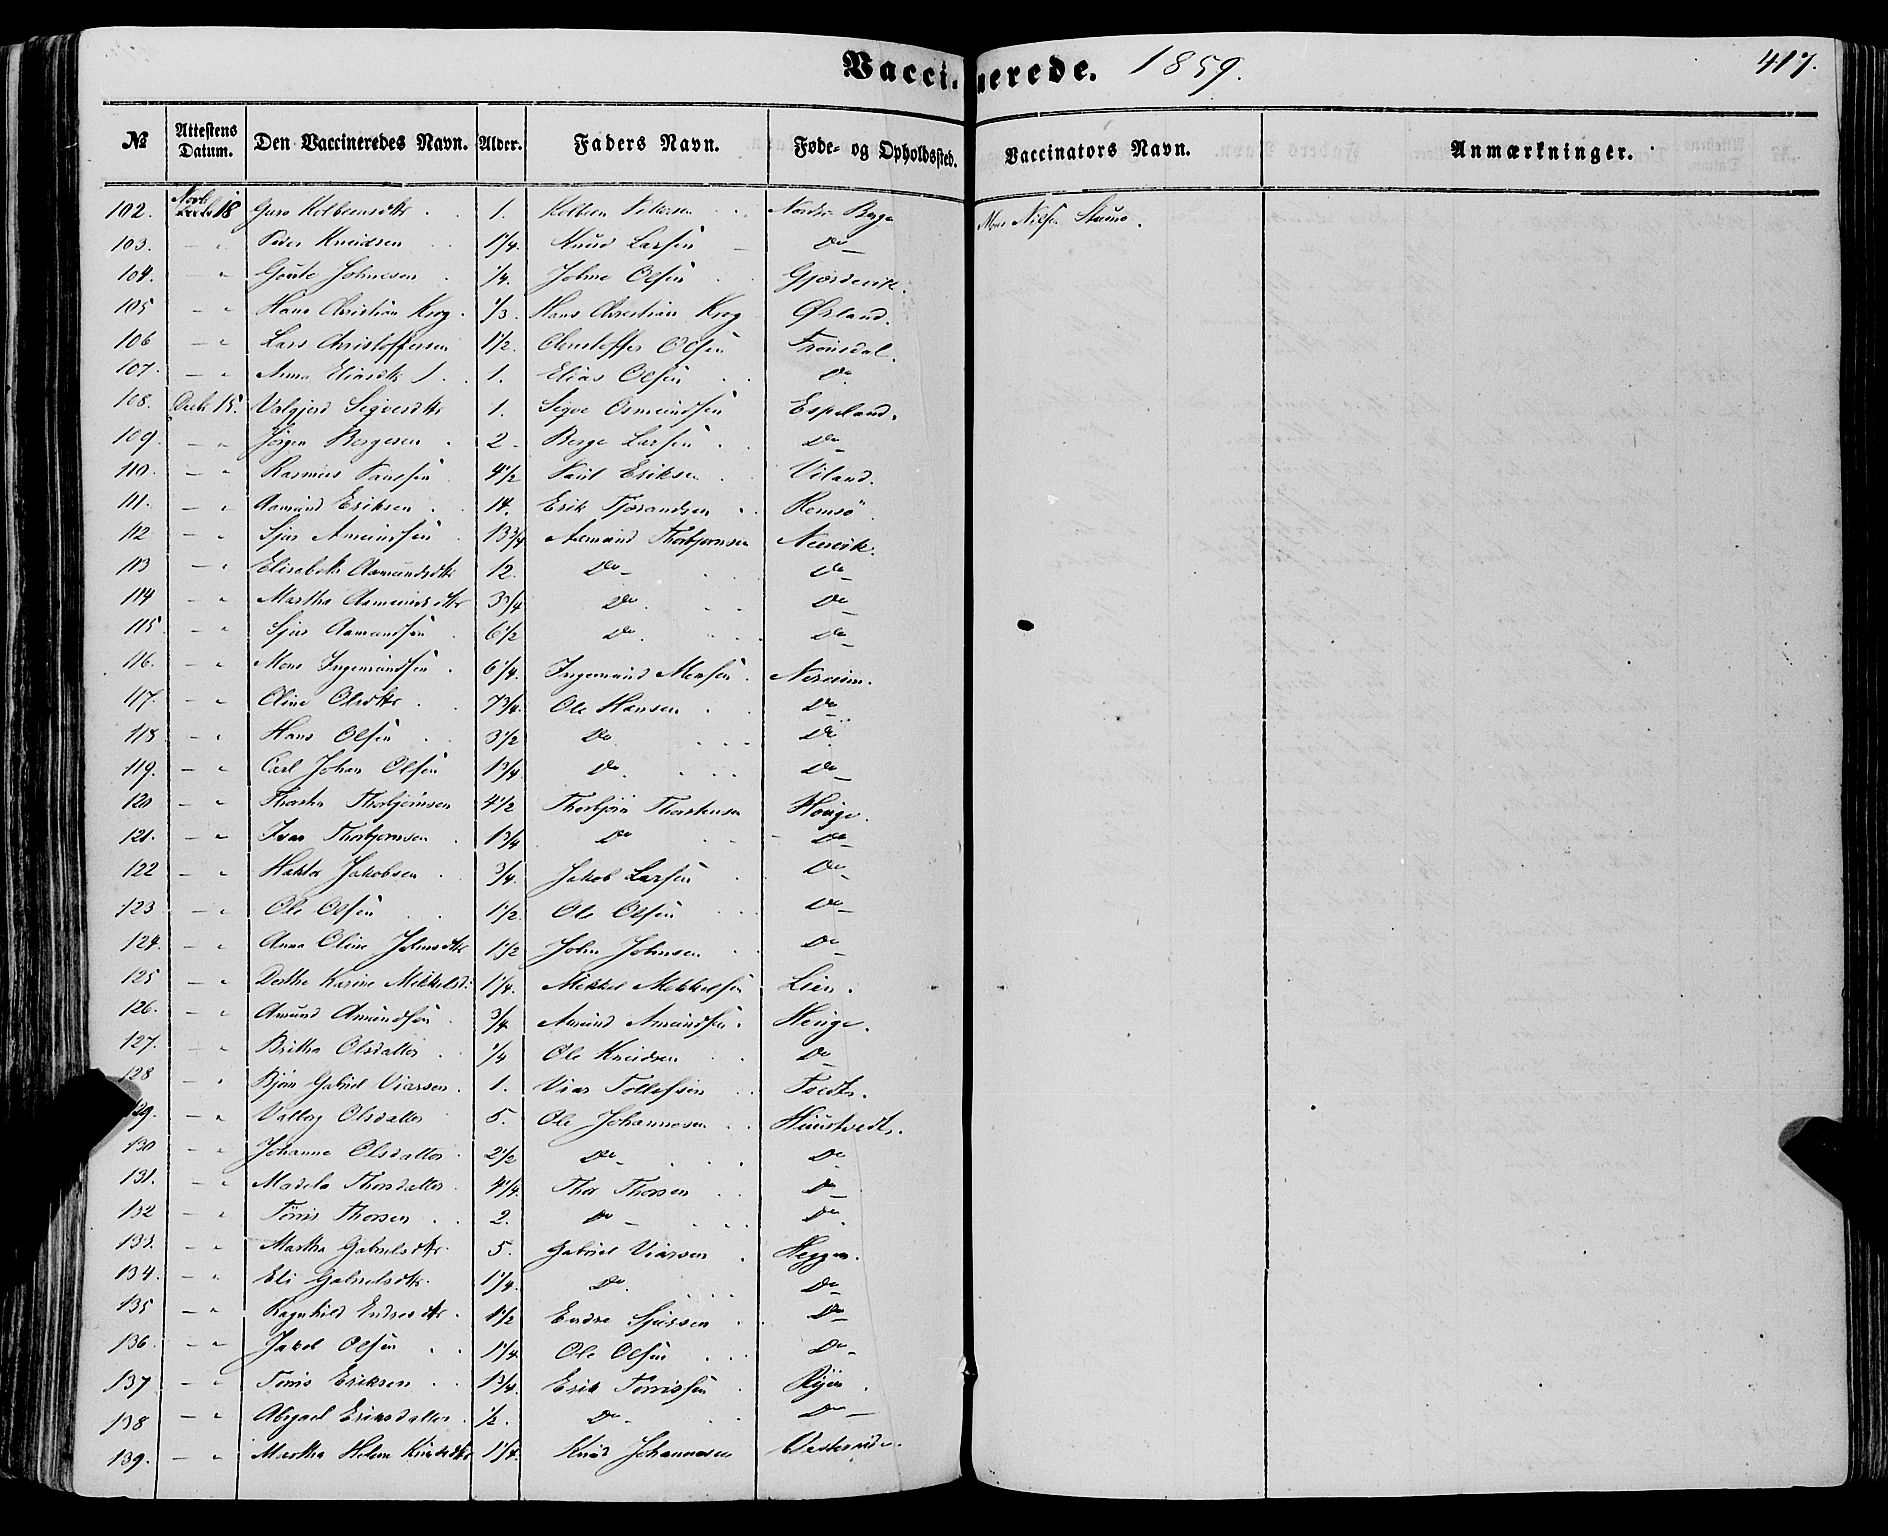 Vaccinerede. 1859. 417.
№ Attestens Datum. Den Vaccineredes Navn. Alder. Faders Navn. Føde- og Opholdssted. Vaccinators Navn. Anmærkninger.
102. 18 Guro Kolbeensdtr 1. Kolbeen Nordre Berge Mons Nilsen
103. — " Peder Knudsen 1 1/4. Knud Larsen Do
104. — " Gaute Johnesen 1/4. Johne Olsen Gjerdevik.
105 — " Hans Christian Krog. 1/3. Hans Christian Krog Ørland.
106 — " Lars Christoffersen 1 1/2. Christoffer Olsen Frønsdal.
107. — " Anna Eliasdtr 1. Elias Olsen Do
108. Decbr 15. Valgjerd Sigvesdtr 1. Sigve Osmundsen Espeland.
109. — " Jørgen Bergesen 2 Berge Larsen Do
110. — " Rasmus Paulsen 4 1/2 Paul Eriksen Viland.
111. — " Aamund Eriksen 14. Erik Tjerandsen Remsö
112 — " Sjur Amundsen 13 3/4 Aamund Thorbjørnsen
113 — " Elisabeth Aamundsdtr 12. Do Do
114 — " Martha Aamundsdtr 3 3/4 Do Do
115. — " Sjur Aamundsen 6 1/2 Do Do
116. — " Mons Ingemundsen 6 1/4. Ingemund Monsen
117. — " Oline Olsdtr 7 3/4. Ole Hansen Do
118 — " Hans Olsen 3 1/2 Do Do
119. — " Carl Johan Olsen 1 3/4 Do Do
120 — " Thorbjørnsen 4 1/2 Thorbjørn Thorstensen Houge.
121. — " Ivar Thorbjørnsen 1 3/4 Do Do
122 — " Jakobsen 3/4. Jakob Larsen Do
123 — " Ole Olsen 1 1/2 Ole Olsen Do
124. — " Anna Oline Johnsdtr 1 1/2 John Johnsen Do
125 — " Dorthe Karine Mikkelsd. 1 1/4. Mikkel Mikkelsen Lien.
126. — " Amund Amundsen 3/4 Amund Amundsen Houge.
127. — " Britha Olsdatter 1/4 Ole Knudsen Do
128 — " Bjørn Gabriel Viarsen. 1. Viar Tollefsen Tvedt.
129. — " Valborg Olsdatter 5. Ole Johannesen
130 — " Johanne Olsdatter 2 1/2 Do Do
131. — " Madela Thorsdatter 4 1/4. Thor Thorsen Do
132 — " Tørris Thorsen 2. Do Do
133. — " Martha Gabrielsdtr 5. Gabriel Viarsen Heggen.
134. — " Eli Gabrielsdtr. 1 1/4. Do Do
135 — " Ragnhild Endresdtr 1 1/2 Endre Sjursen Do
136. — " Jakob Olsen 1 1/4 Ole Olsen Do
137 — " Tørris Eriksen 1 3/4. Erik Tørrissen
138 — " Abigael Eriksdatter 1/2. Do Do
139. — " Martha Helene Knudsdtr 1 1/4. Knud Johannesen